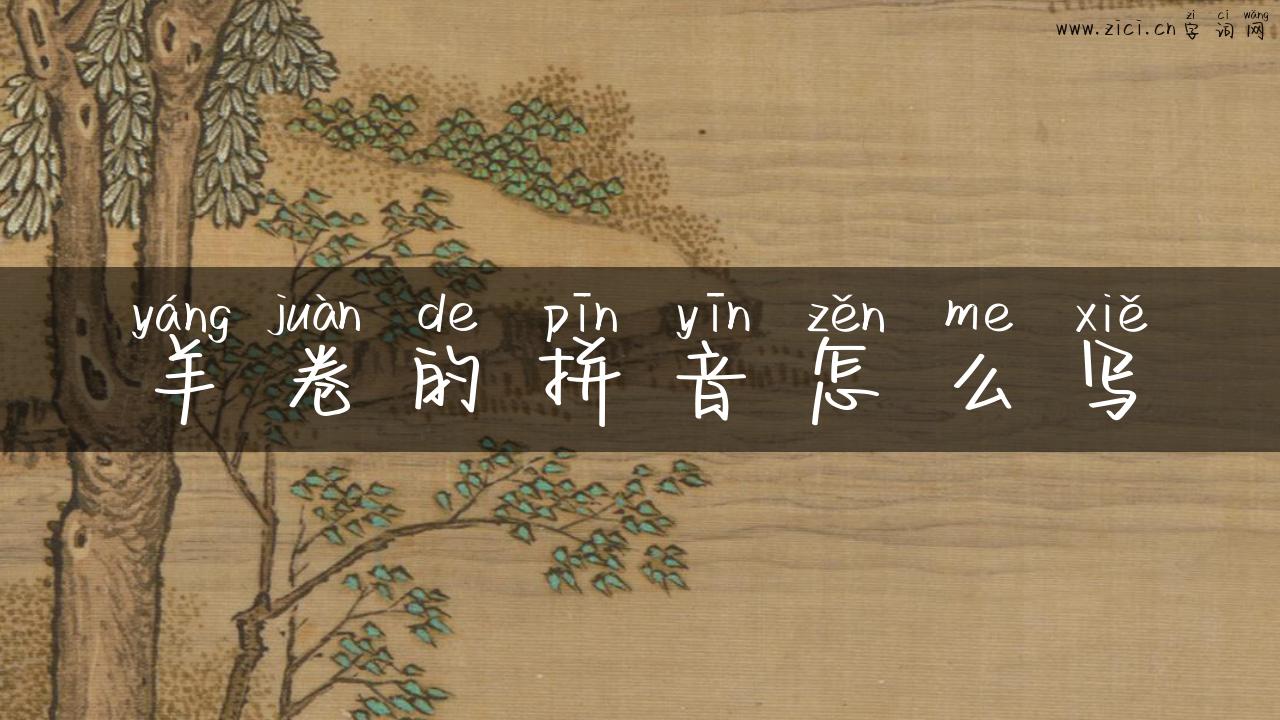 zì cí wǎng
www.zici.cn 字词网
yáng juàn de pīn yīn zěn me xiě
羊卷的拼音怎么写